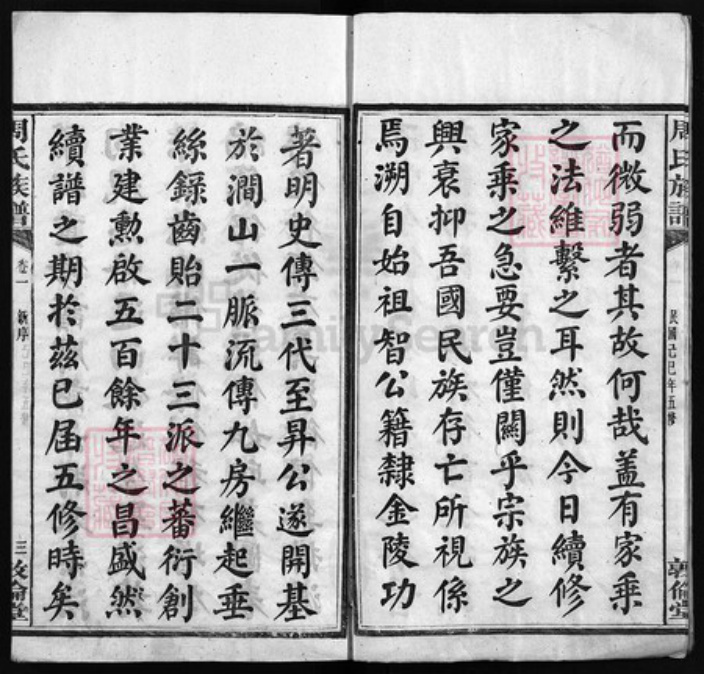 周氏族譜
民國己巳年五修
敦倫堂
而微弱者其故何哉蓋有家乗
之法維繫之耳然則今日續修
家乗之急要豈僅關乎宗族之
興衰抑吾國民族存亡所視係
焉溯自始祖智公籍隸金陵功
著明史傳三代至昇公遂開基
於澗山一脈流傳九房繼起垂
絲錄齒貽二十三派之蕃衍創
業建勲啟五百餘年之昌盛然
續譜之期於茲已屆五修時矣
周氏族譜
卷一
新序
三
敦倫堂
FamilySearch